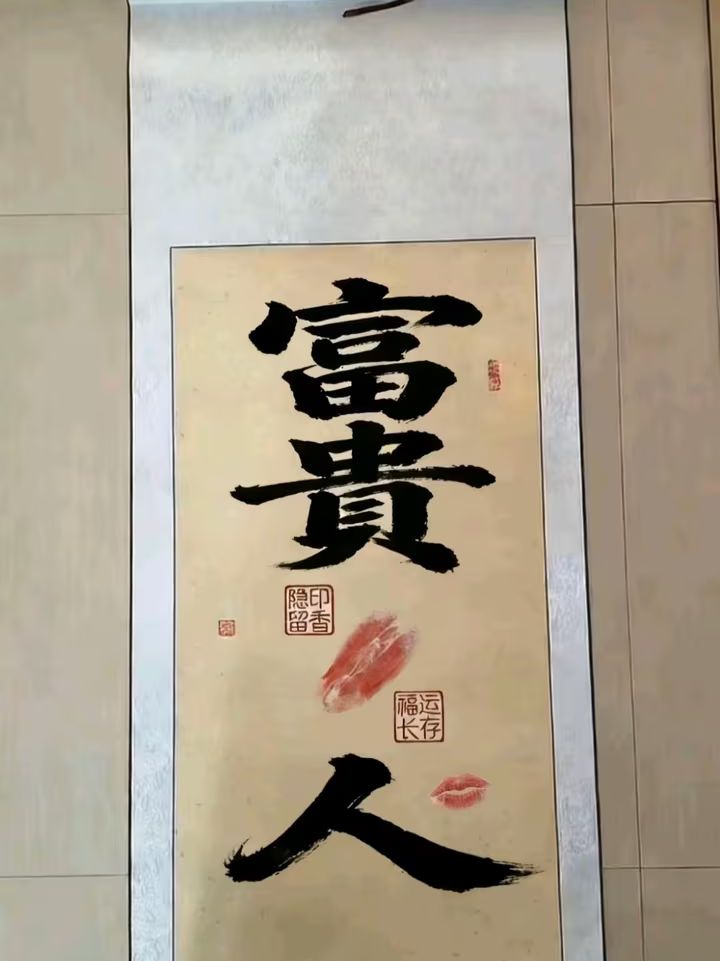 富
貴
印香
隐留
运存
福长
人